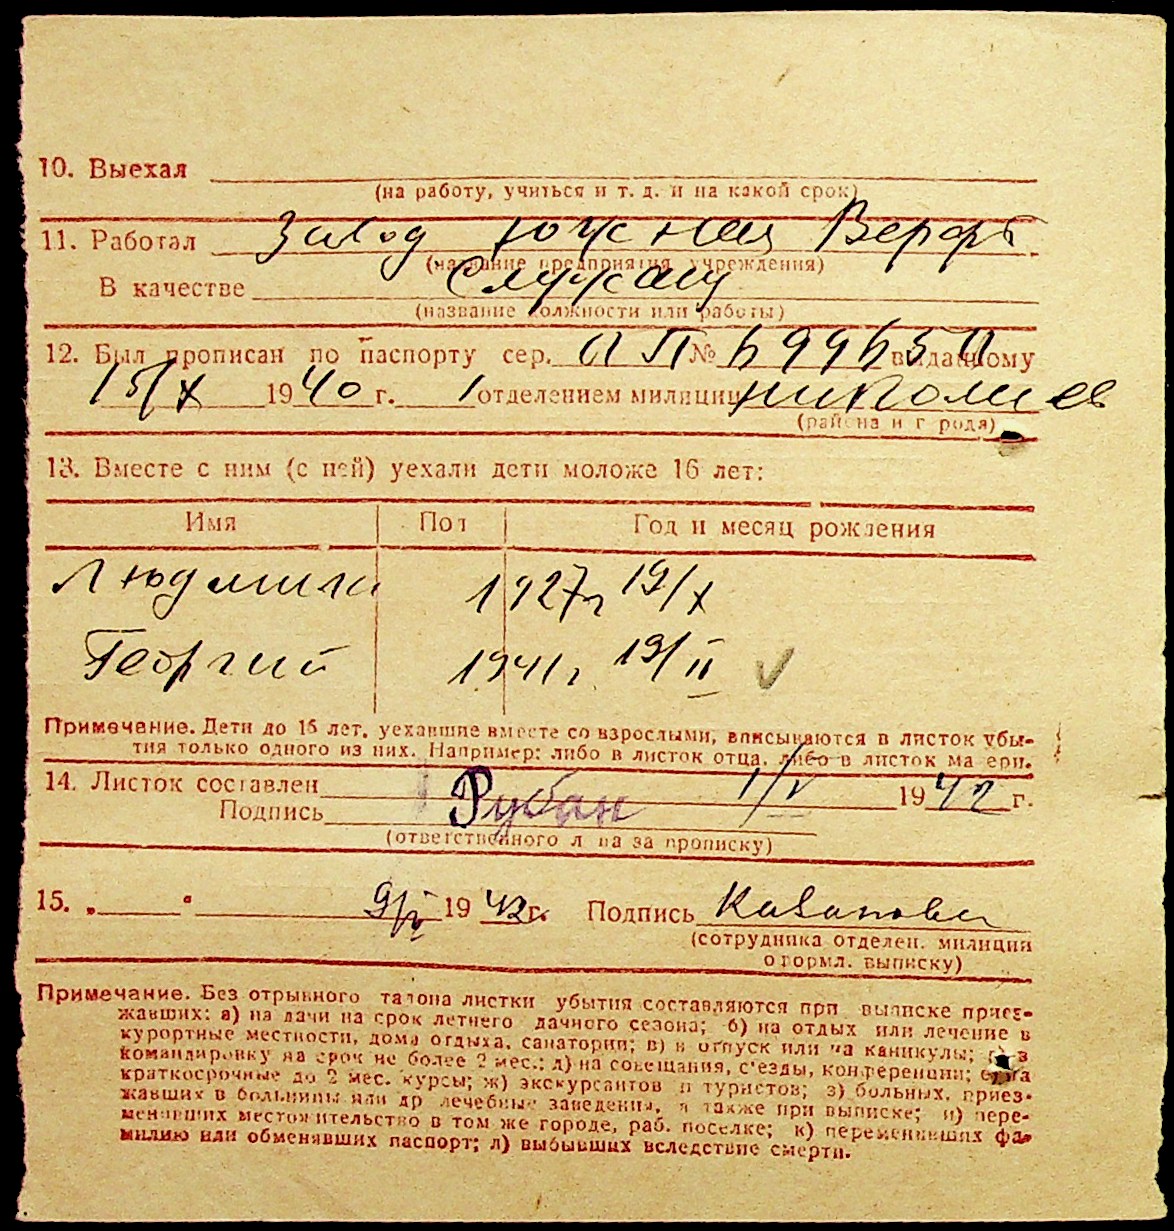 10. Выехал
(на работу, учиться и т. д. и на какой срок)
11. Работал Завод Южная Верфь
(название предприятия, учреждения)
В качестве служащ
(название должности или работы)
12. Был прописан по паспорту сер. АП № выданному
15/X 1940 г. 1 отделением милиции Николаев
(района и города)
13. Вместе с ним (с ней) уехали дети моложе 16 лет:
Имя Пол Год и месяц рождения
Людмила 1927г 19/X
Георгий 1941г 19/II
Примечание. Дети до 16 лет, уехавшие вместе со взрослыми, вписываются в листок убы-
тия только одного из них. Например: либо в листок отца, либо в листок матери.
14. Листок составлен 1/V 1942 г.
Подпись Рубан
(ответственного лица за прописку)
15. „ “ 9/V 1942 г. Подпись
(сотрудника отделен. милиции
оформл. выписку)
Примечание. Без отрывного талона листки убытия составляются при выписке приез-
жавших: а) на дачи на срок летнего дачного сезона; б) на отдых или лечение в
курортные местности, дома отдыха, санатории; в) в отпуск или на каникулы; г) в
командировку на срок не более 2 мес.; д) на совещания, с'езды, конференции; е) на
краткосрочные до 2 мес. курсы; ж) экскурсантов и туристов; з) больных, приез-
жавших в больницы или др лечебные заведения, а также при выписке; и) пере-
менивших местожительство в том же городе, раб. поселке; к) переменивших фа-
милию или обменявших паспорт; л) выбывших вследствие смерти.